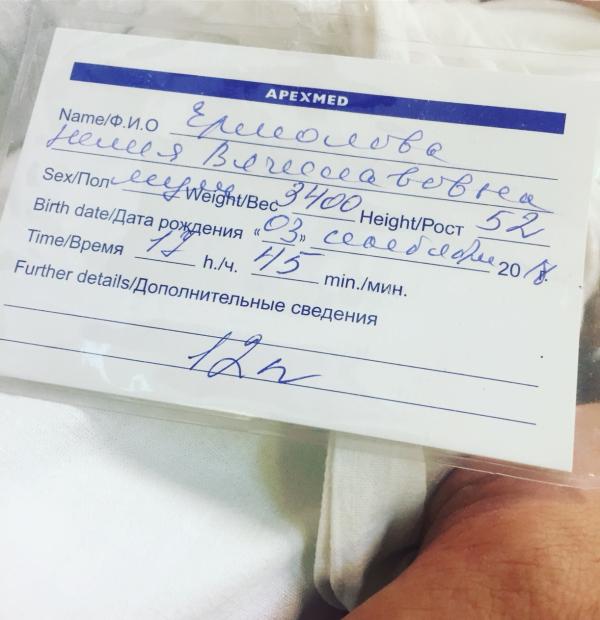 APEXMED
Name/Ф.И.О Ермолова
Вячеславовна
Sex/Пол муж Weight/Вес 3400 Height/Рост 52
Birth date/Дата рождения «03» сентября 2018г.
Time/Время 17 h./ч. 45 min./мин.
Further details/Дополнительные сведения
12п